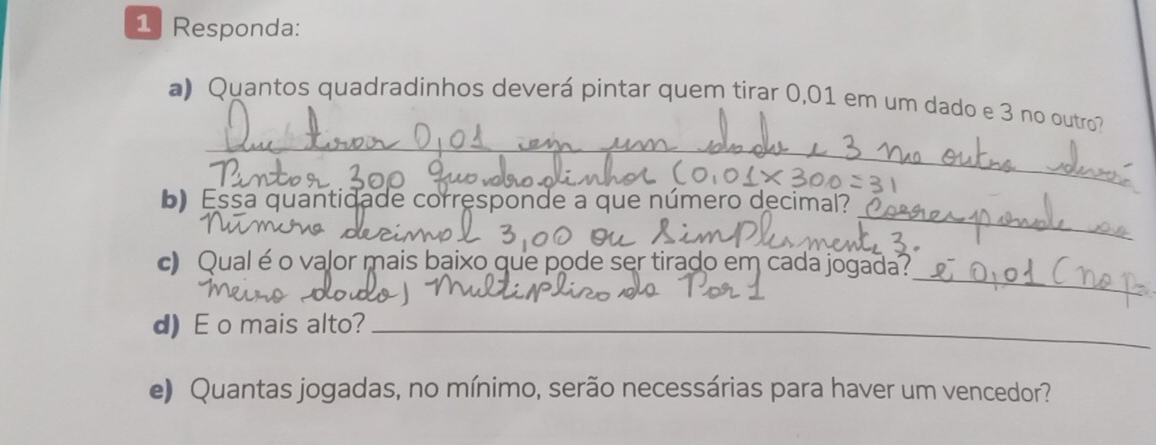 1 Responda:
a) Quantos quadradinhos deverá pintar quem tirar 0,01 em um dado e 3 no outro?
Que tirar 0,01 em um dado e 3 no outro deverá
Pintar 300 quadradinhos (0,01×300=3)
b) Essa quantidade corresponde a que número decimal? Corresponde ao
número decimal 3,00 ou simplesmente 3.
c) Qual é o valor mais baixo que pode ser tirado em cada jogada? é 0,01 (no pri
meiro dado) multiplicado Por 1
d) E o mais alto?
e) Quantas jogadas, no mínimo, serão necessárias para haver um vencedor?